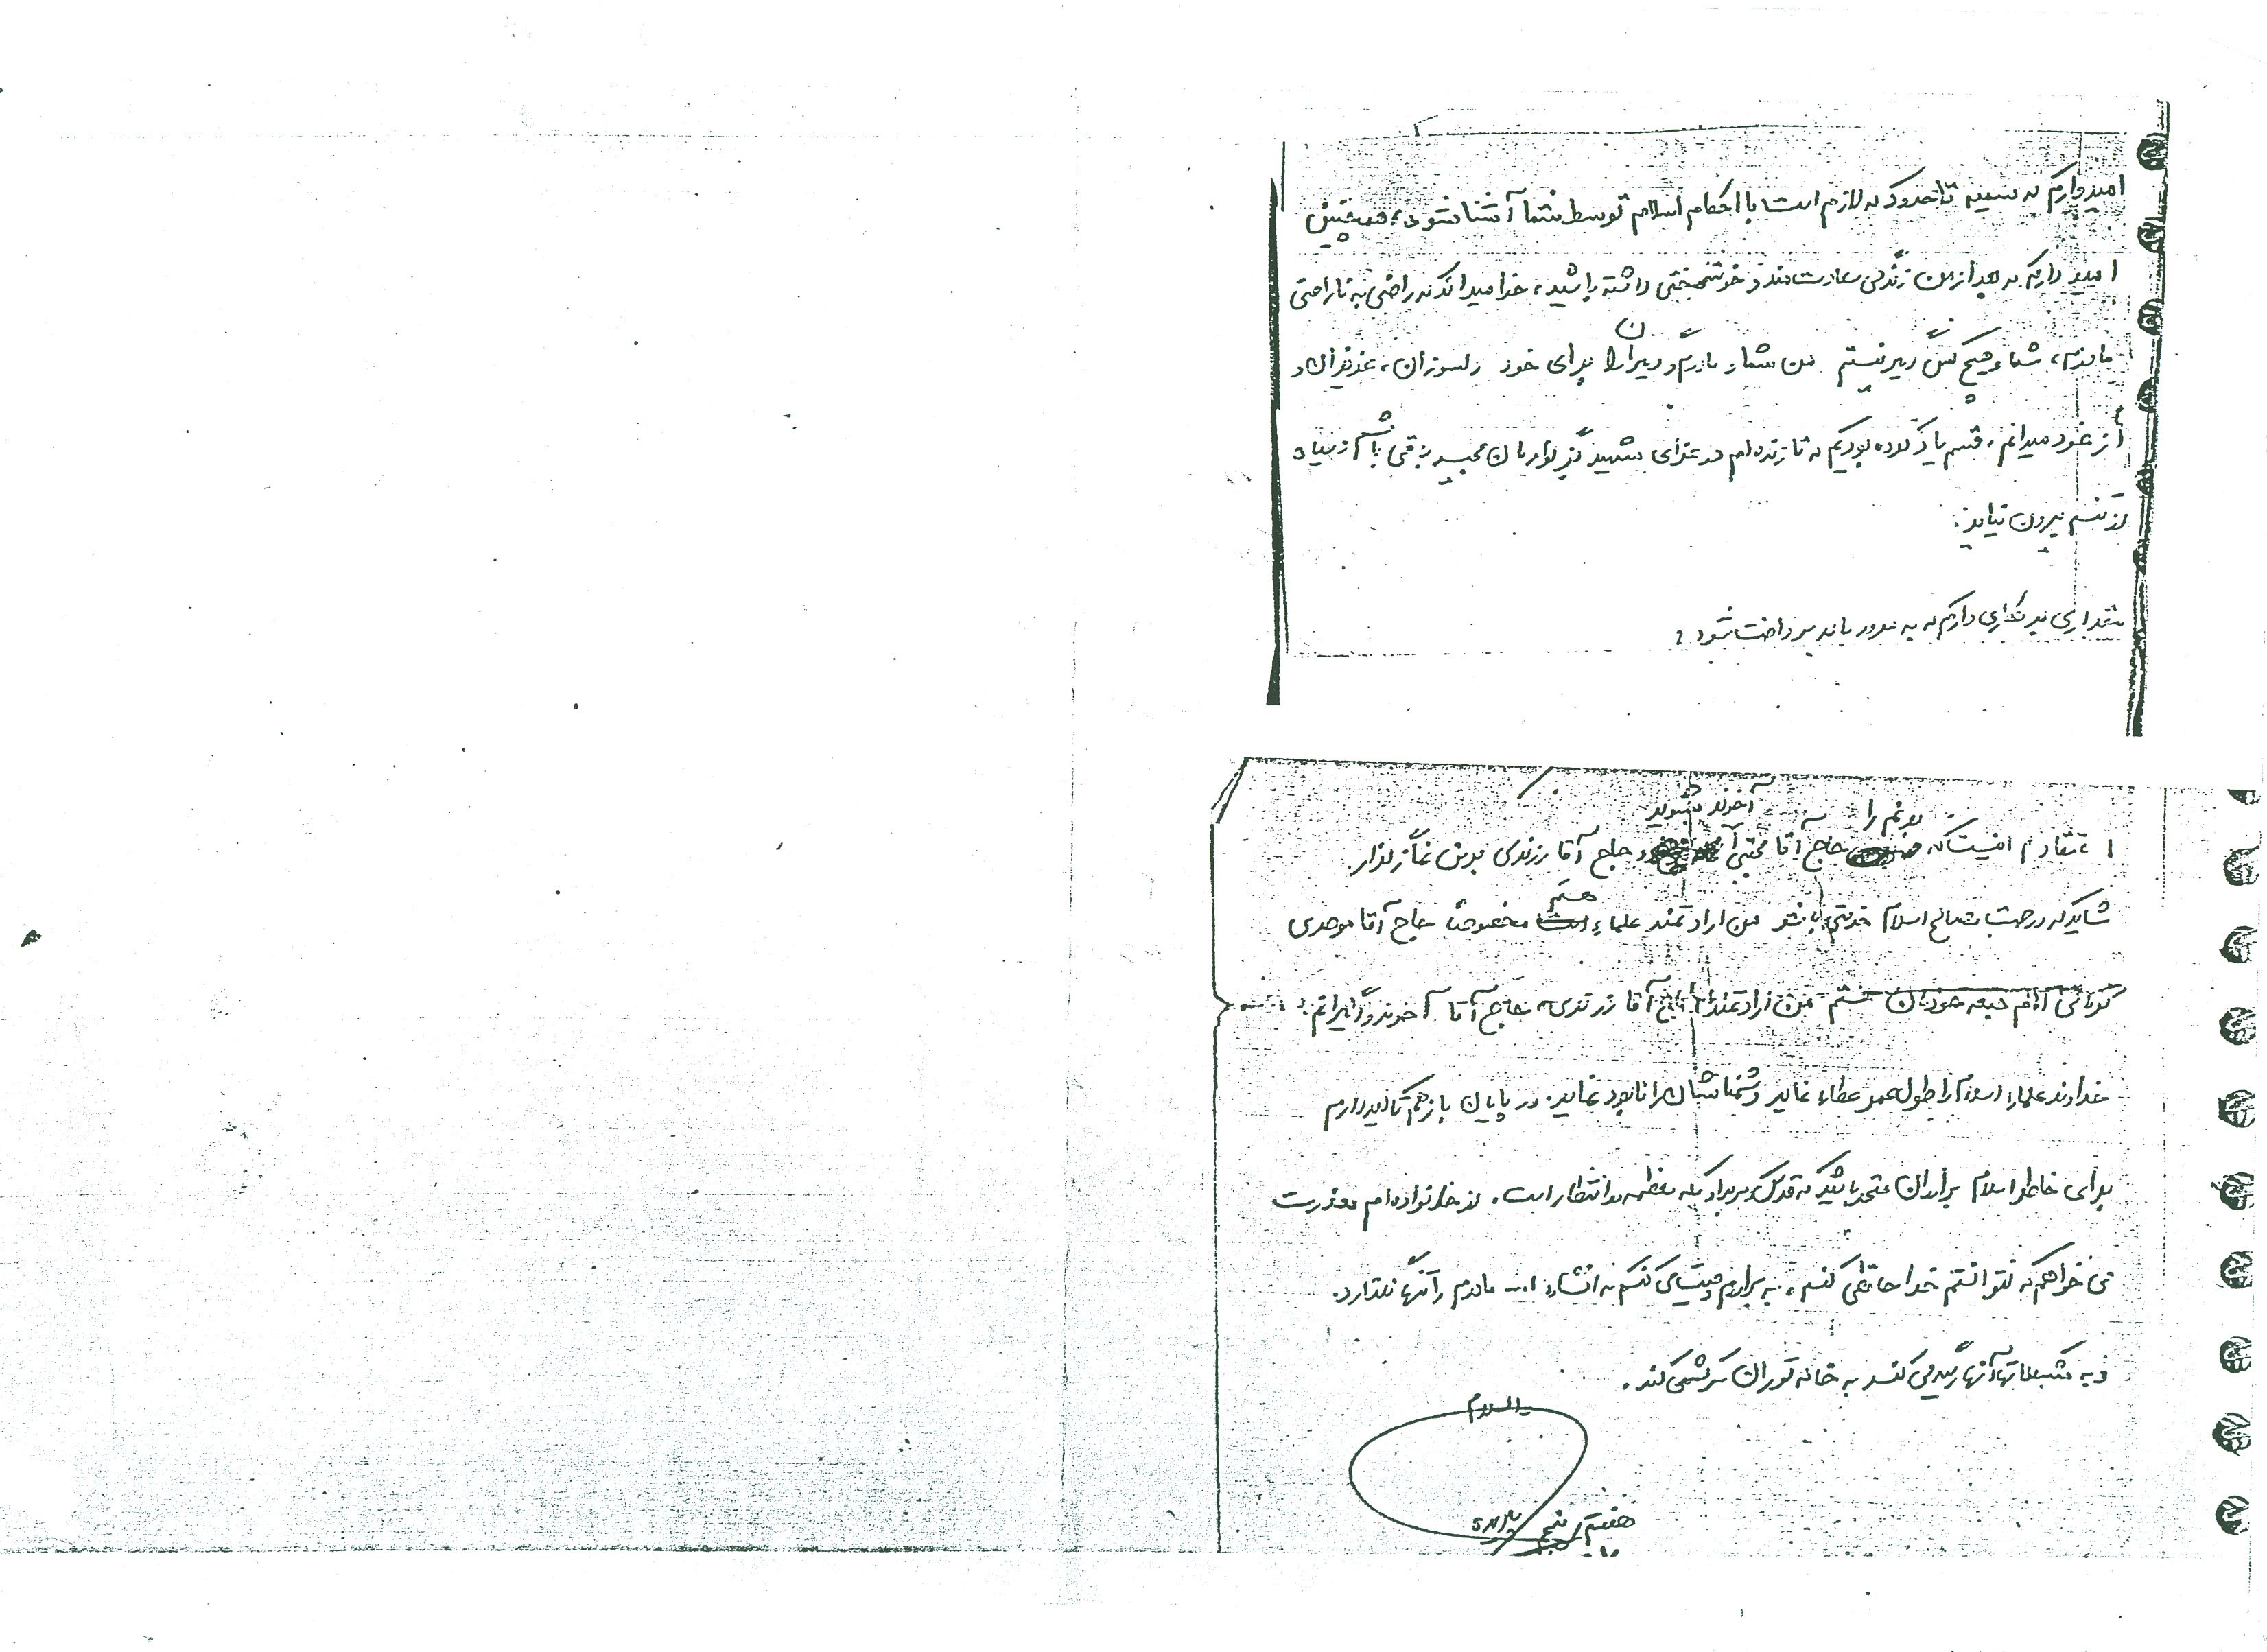 امیدوارم که سمیه تا حدودی که لازم است با احکام اسلام توسط شما آشنا شود، همچنین
امید دارم که بعد از من زندگی سعادتمند و خوشبختی داشته باشید، خدا میداند که راضی به ناراحتی
مادرم، شما و هیچ کس دیگر نیستم من شما و مادرم و دیگران را برای خود دلسوزان، عزیزان و
از خود میدانم، قسم یاد کرده بودیم که تا زنده‌ام در عزای شهید باشم و لباس سیاه
از تنم بیرون نیاید.
مقداری بدهکاری دارم که به مرور باید پرداخت شود
آخوند بشوید
بدنم را
اعتقادم اینست که حاج آقا مجتبی حاج آقا زرندی بر من نماز گذار.
شاید که در جهت مصالح اسلام خدمتی باشد من ارادتمند علماء هستم مخصوصاً حاج آقا موحدی
کرمانی امام جمعه خودمان هستم من ارادتمند حاج آقا زرندی، حاج آقا آخوند و
خداوند علماء اسلام را طول عمر عطاء نماید و دشمنانشان را نابود نماید. در پایان باز هم تاکید دارم
برای خاطر اسلام برادران متحد باشید که در انتظار است. از خانواده‌ام معذرت
می خواهم که نتوانستم خداحافظی کنم، به برادرم وصیت می کنم که انشاء ا... مادرم را تنها نگذارد.
و به مشکلات آنها رسیدگی کند به خانه سرکشی کند.
والسلام
هفتم / پنجم /